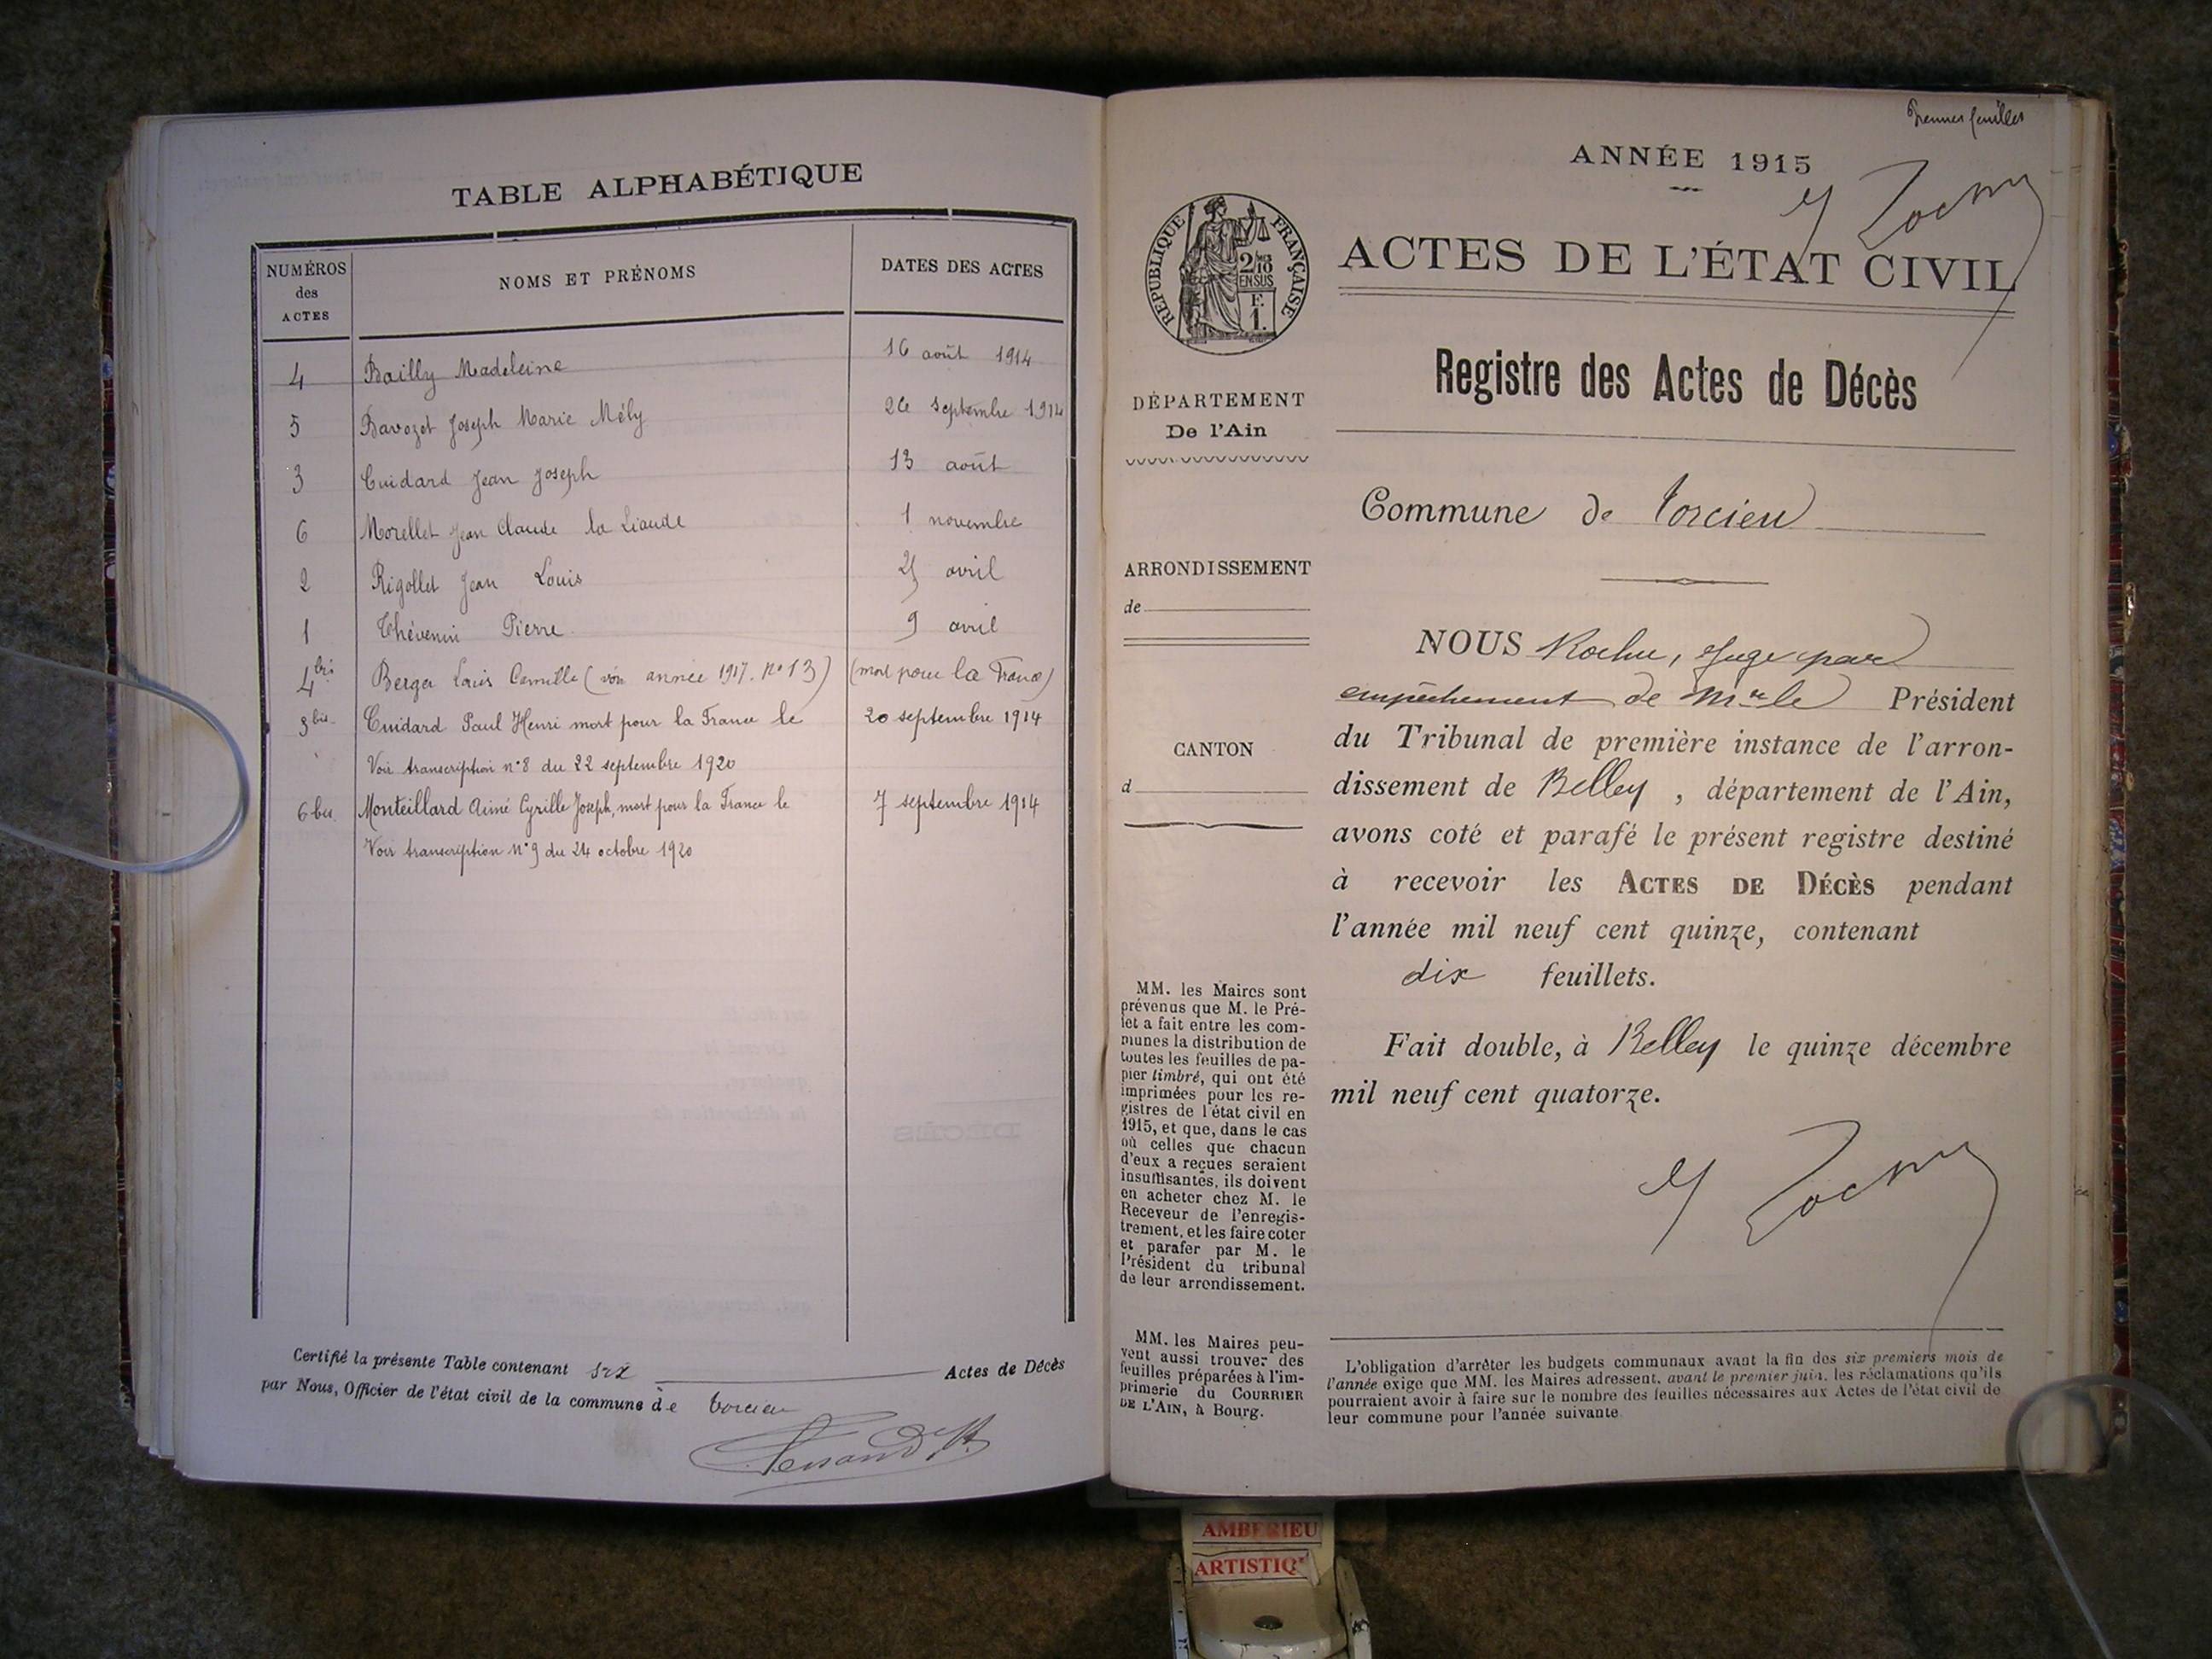 TABLE ALPHABÉTIQUE
NUMÉROS des ACTES NOMS ET PRÉNOMS DATES DES ACTES
4 Bailly Madeleine 16 août 1914
5 Bavozet Joseph Marie Mély 26 septembre 1914
3 Cuidard Jean Joseph 13 août
6 Morellet Jean Claude la Liaude 1 novembre
2 Rigollet Jean Louis 25 avril
1 Thévenin Pierre 9 avril
4 bis Berger Louis Camille (voir année 1917. No 13) (mort pour la France)
3 bis Cuidard Paul Henri mort pour la France le 20 septembre 1914
Voir transcription n° 8 du 22 septembre 1920
6 bis Monteillard Aimé Cyrille Joseph, mort pour la France le 7 septembre 1914
Voir transcription N° 9 du 24 octobre 1920
Certifié la présente Table contenant six Actes de Décès
par Nous, Officier de l'état civil de la commune de Torcieu
ANNÉE 1915
RÉPUBLIQUE FRANÇAISE
2/10 EN SUS
F. 1.
ACTES DE L'ÉTAT CIVIL
Registre des Actes de Décès
DÉPARTEMENT
De l'Ain
Commune de Torcieu
ARRONDISSEMENT
de
CANTON
d
NOUS Rochu, Juge par
empêchement de Mr le Président
du Tribunal de première instance de l'arron-
dissement de Belley, département de l'Ain,
avons coté et parafé le présent registre destiné
à recevoir les ACTES DE DÉCÈS pendant
l'année mil neuf cent quinze, contenant
dix feuillets.
Fait double, à Belley le quinze décembre
mil neuf cent quatorze.
MM. les Maires sont
prévenus que M. le Pré-
fet a fait entre les com-
munes la distribution de
toutes les feuilles de pa-
pier timbré, qui ont été
imprimées pour les re-
gistres de l'état civil en
1915, et que, dans le cas
où celles que chacun
d'eux a reçues seraient
insuffisantes, ils doivent
en acheter chez M. le
Receveur de l'enregis-
trement, et les faire coter
et parafer par M. le
Président du tribunal
de leur arrondissement.
MM. les Maires peu-
vent aussi trouver des
feuilles préparées à l'im-
primerie du COURRIER
DE L'AIN, à Bourg.
L'obligation d'arrêter les budgets communaux avant la fin des six premiers mois de
l'année exige que MM. les Maires adressent, avant le premier juin, les réclamations qu'ils
pourraient avoir à faire sur le nombre des feuilles nécessaires aux Actes de l'état civil de
leur commune pour l'année suivante
AMBERIEU
ARTISTIQ